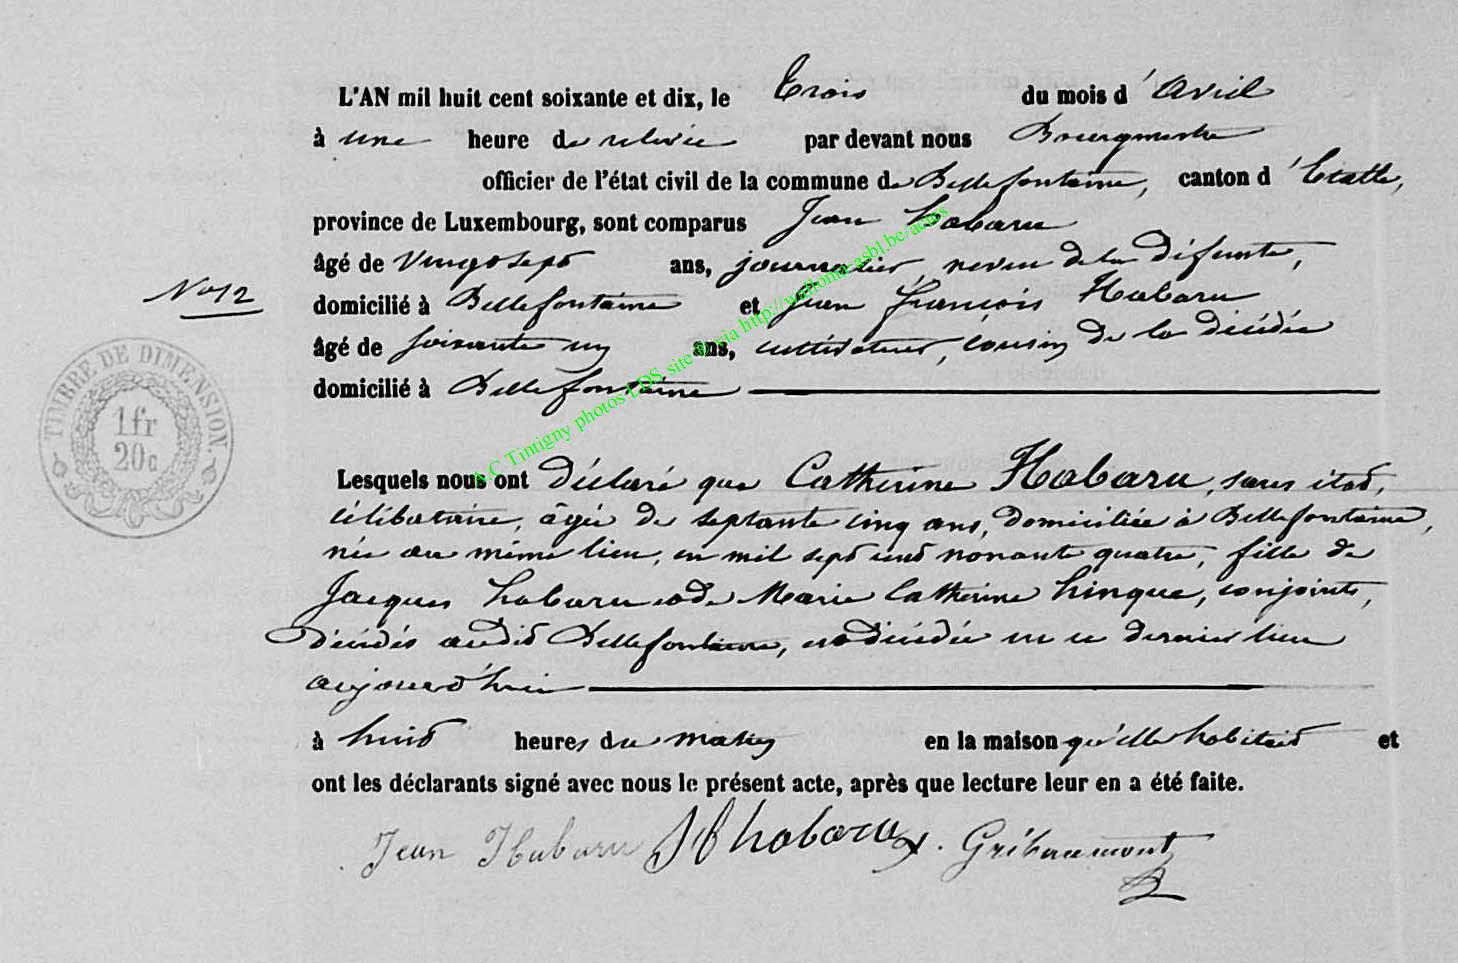 L'AN mil huit cent soixante et dix, le Trois du mois d'avril
à une heure de relevée par devant nous Bourgmestre
officier de l'état civil de la commune de Bellefontaine, canton d'Etalle,
province de Luxembourg, sont comparus Jean habaru
âgé de vingt sept ans, journalier, neveu de la défunte,
No 12
domicilié à Bellefontaine et Jean françois Habaru
âgé de soixante un ans, cultivateur, cousin de la décédée
domicilié à Bellefontaine
TIMBRE DE DIMENSION.
1 fr
20 c
A.C Tintigny photos LDS site via http://wallonia-asbl.be/actes
Lesquels nous ont déclaré que Catherine Habaru, sans état,
célibataire, âgée de septante cinq ans, domiciliée à Bellefontaine,
née au même lieu, en mil sept cent nonante quatre, fille de
Jacques habaru et de Marie Catherine hinque, conjoints,
décédés audit Bellefontaine, est décédée en ce dernier lieu
aujourd'hui
à huit heures du matin en la maison qu'elle habitait et
ont les déclarants signé avec nous le présent acte, après que lecture leur en a été faite.
Jean Habaru JF habaru. Gribaumont